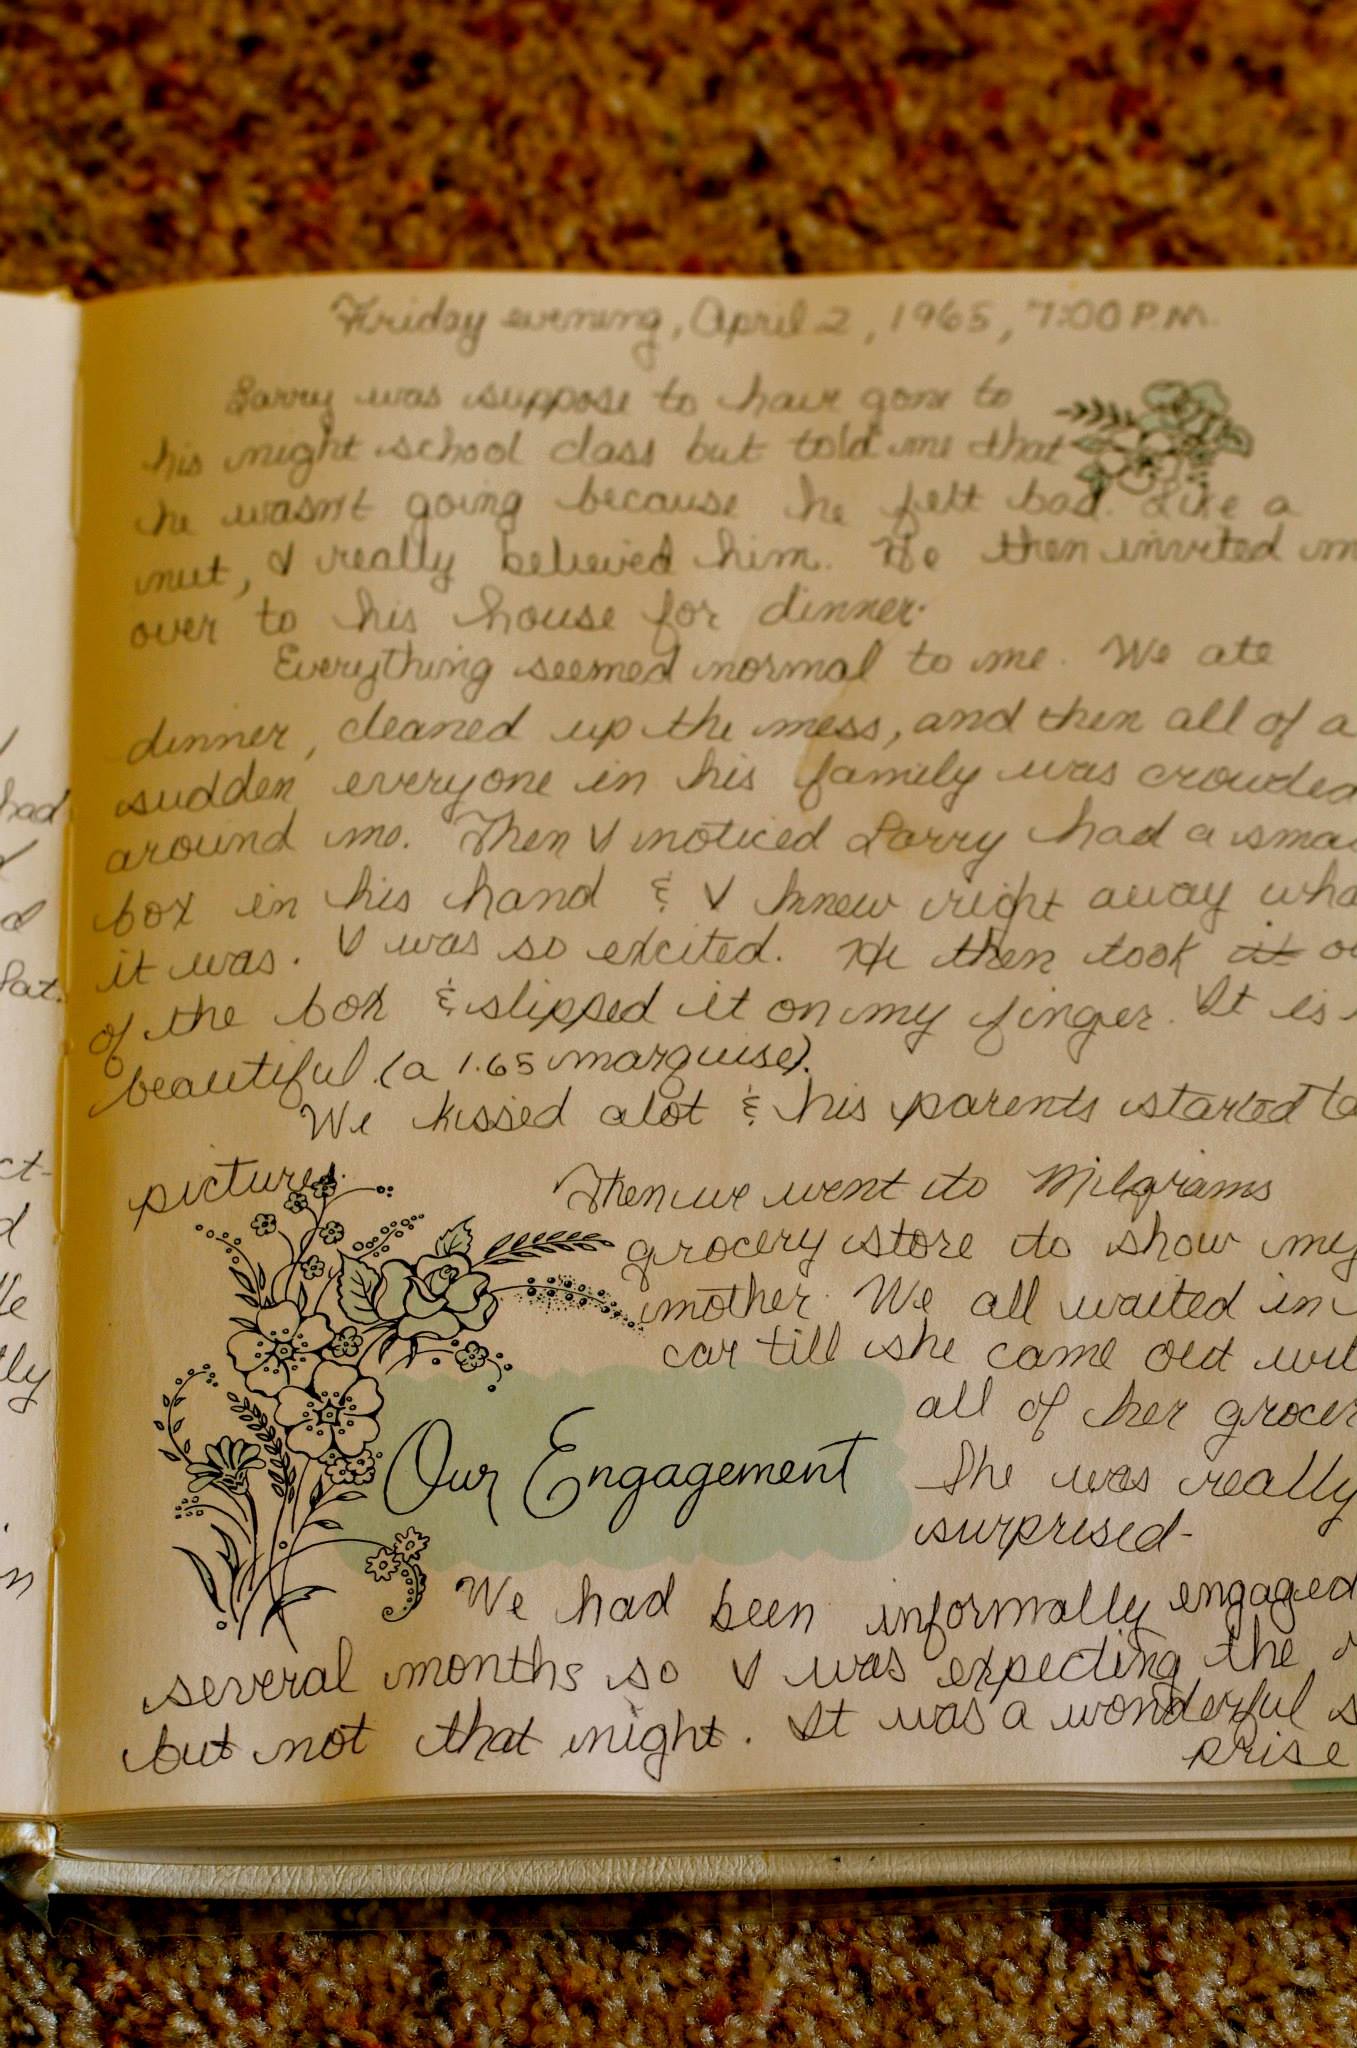 Friday evening, April 2, 1965, 7:00 P.M.
Larry was suppose to have gone to
his night school class but told me that
he wasn't going because he felt bad. Like a
nut, I really believed him. He then invited
over to his house for dinner.
Everything seemed normal to me. We ate
dinner, cleaned up the mess, and then all of a
sudden everyone in his family was crowded
around me. Then I noticed Larry had a
box in his hand & I knew right away
it was. I was so excited. He then took it
of the box & slipped it on my finger. It is
beautiful. (a 1.65 marquise).
We kissed alot & his parents started
pictures.
Then we went to Milgrams
grocery store to show my
mother. We all waited in
car till she came out
all of her
She was really
surprised-
Our Engagement
We had been informally engaged
several months so I was expecting the
but not that night. It was a wonderful
prise
had
Sat.